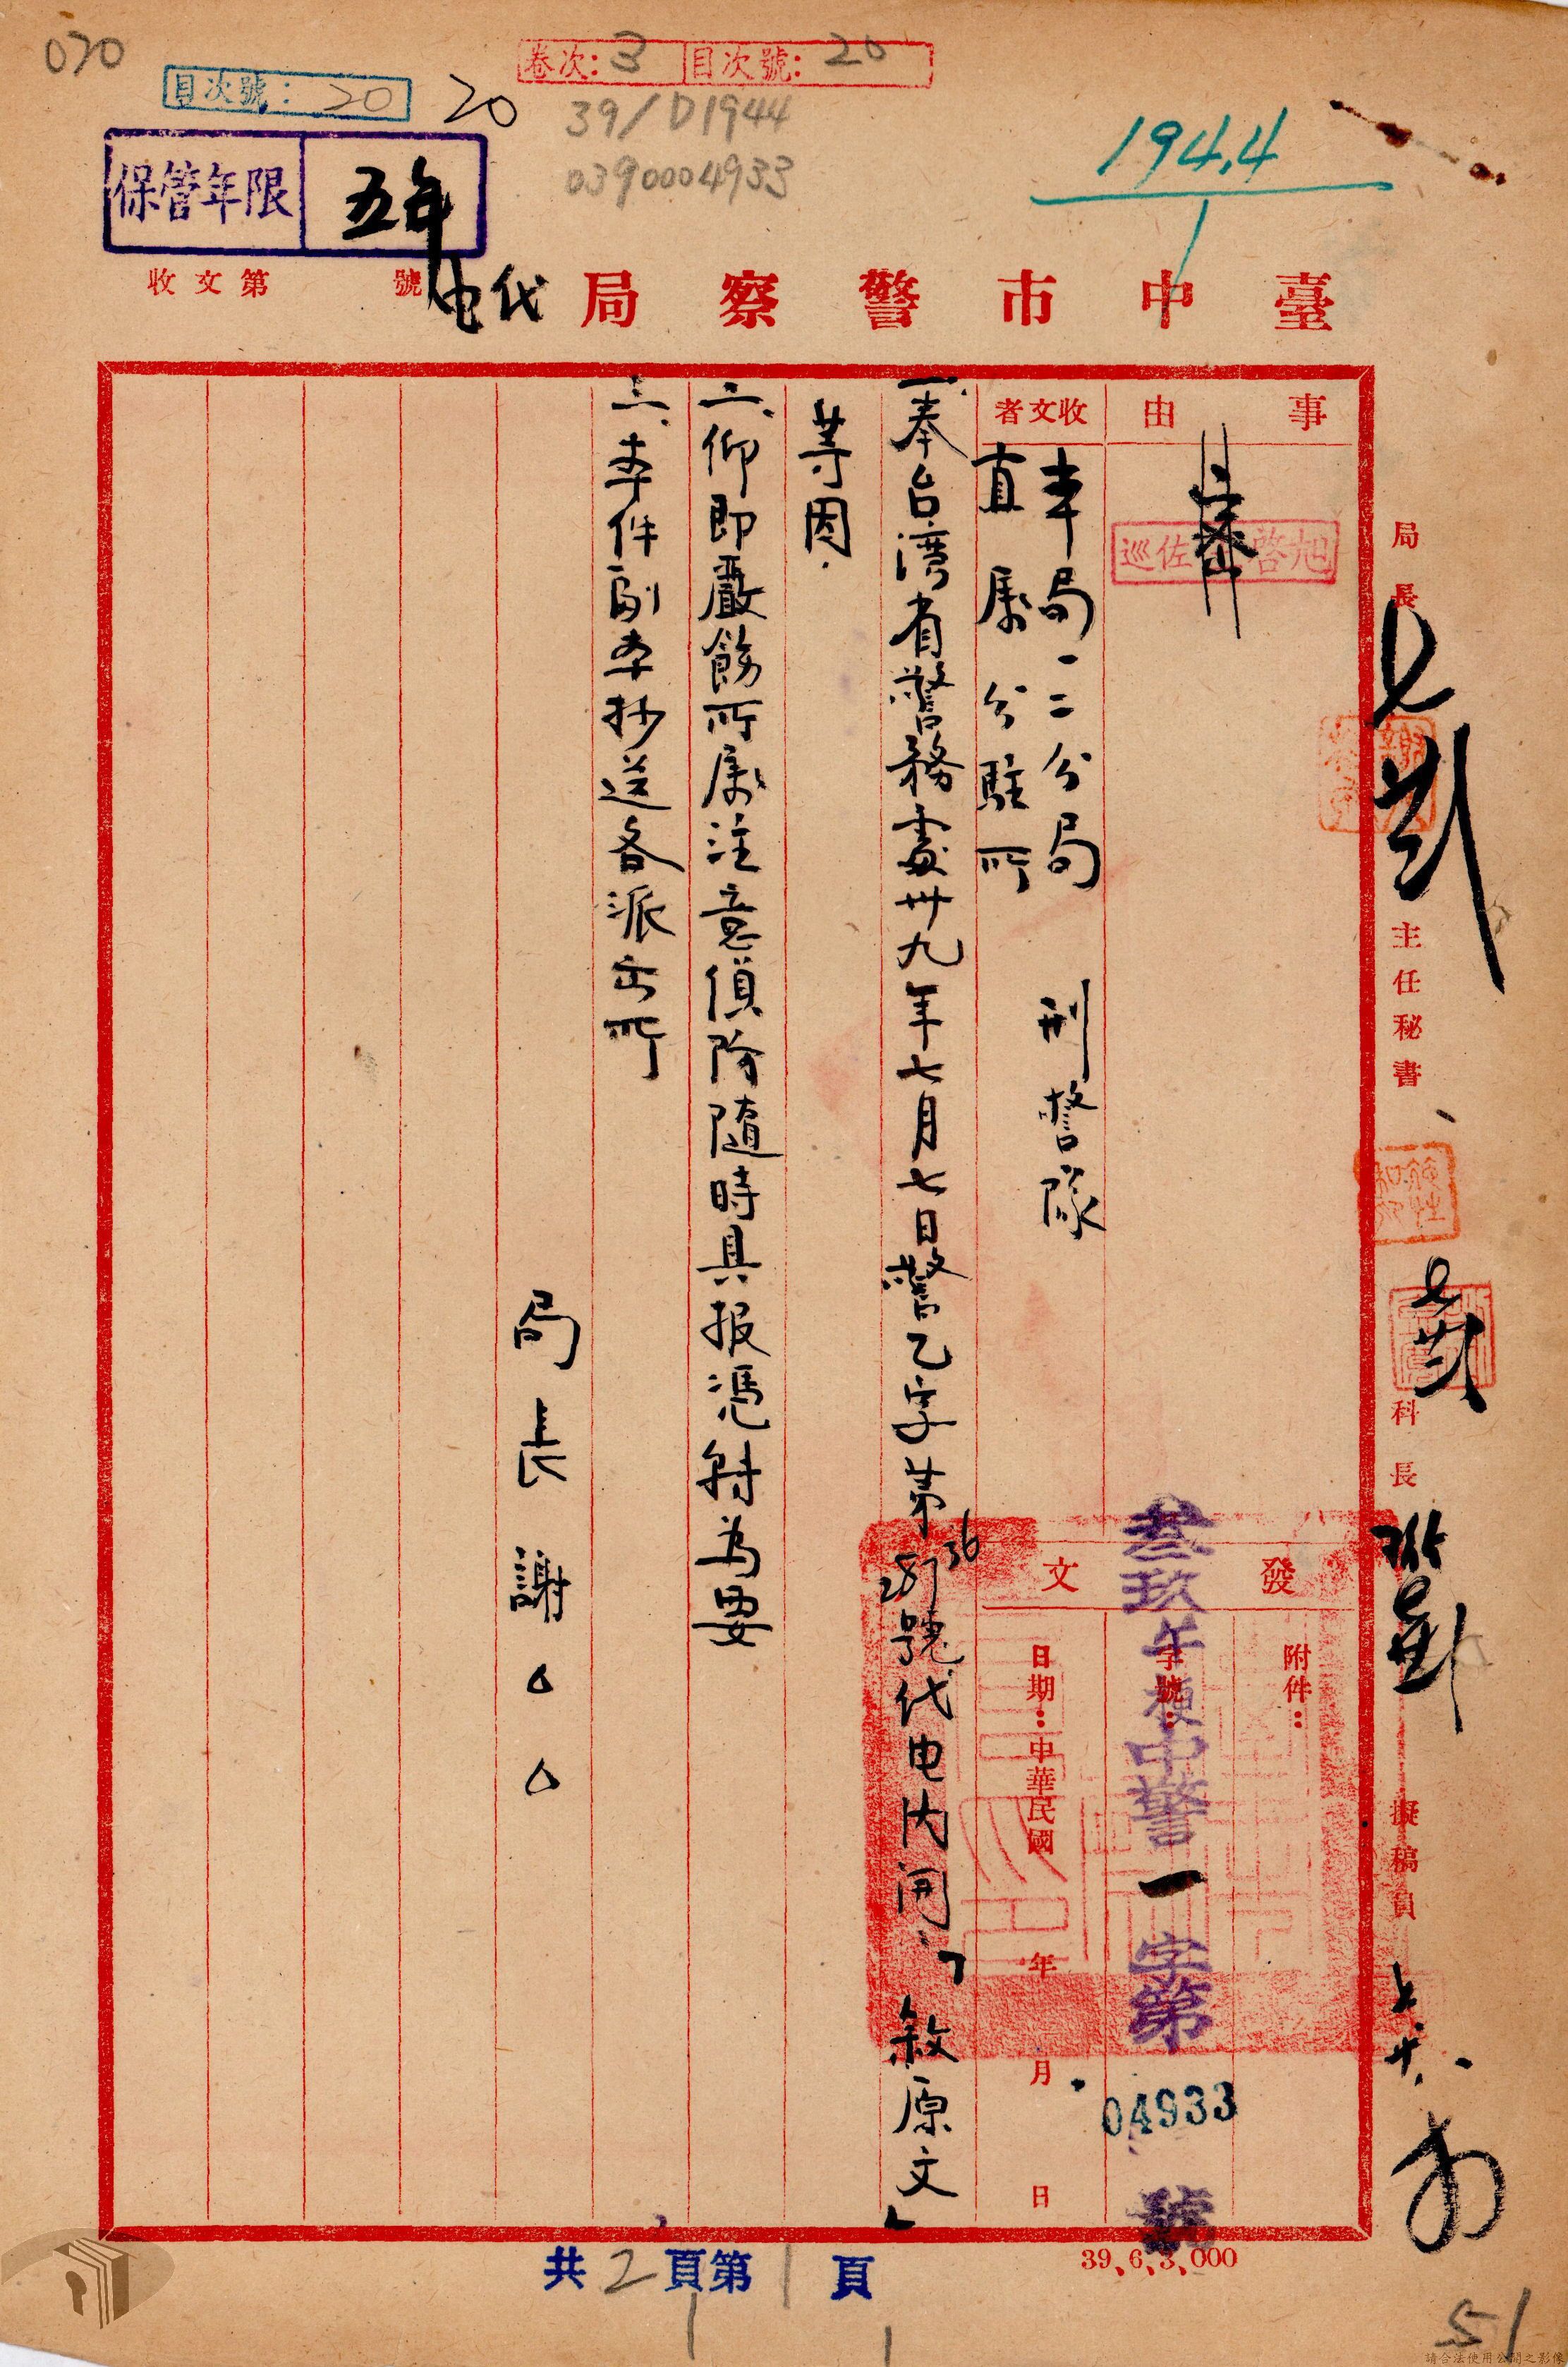 070
卷次：3 目次號：20
目次號：20
20
39/D1944
0390004933
194.4
1
保管年限 五年
臺中市警察局代电
收文第 號
事由
收文者
本局一二分局 刑警隊
直屬分駐所
發文
附件：
字號：
叁玖午梗中警一字第04933號
日期：中華民國 年 月 日
一、奉台湾省警務處卅九年七月七日警乙字第 號代电内開：「敘原文」
等因.
二、仰即嚴飭所屬注意偵防隨時具报憑轉為要
三、本件副本抄送各派出所
局長謝△△
局長
主任秘書
科長
擬稿員
共2頁第1頁
39、6、3、000
51
請合法使用公開之影像